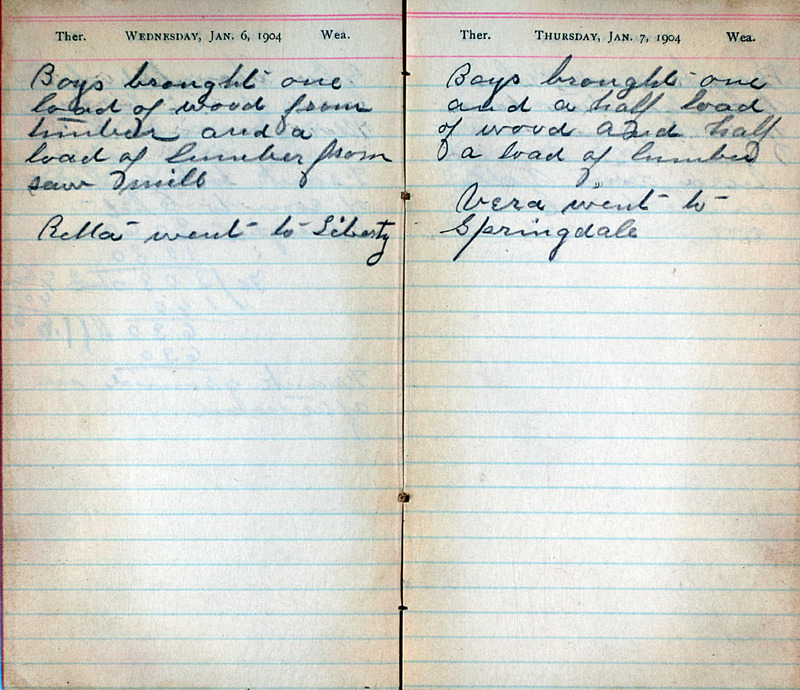 Ther. WEDNESDAY, JAN. 6, 1904 Wea.
Boys brought one
load of wood from
timber and a
load of lumber from
saw mill
Bella went to Liberty
Ther. THURSDAY, JAN. 7, 1904 Wea.
Boys brought one
and a half load
of wood and half
a load of lumber
Vera went to
Springdale